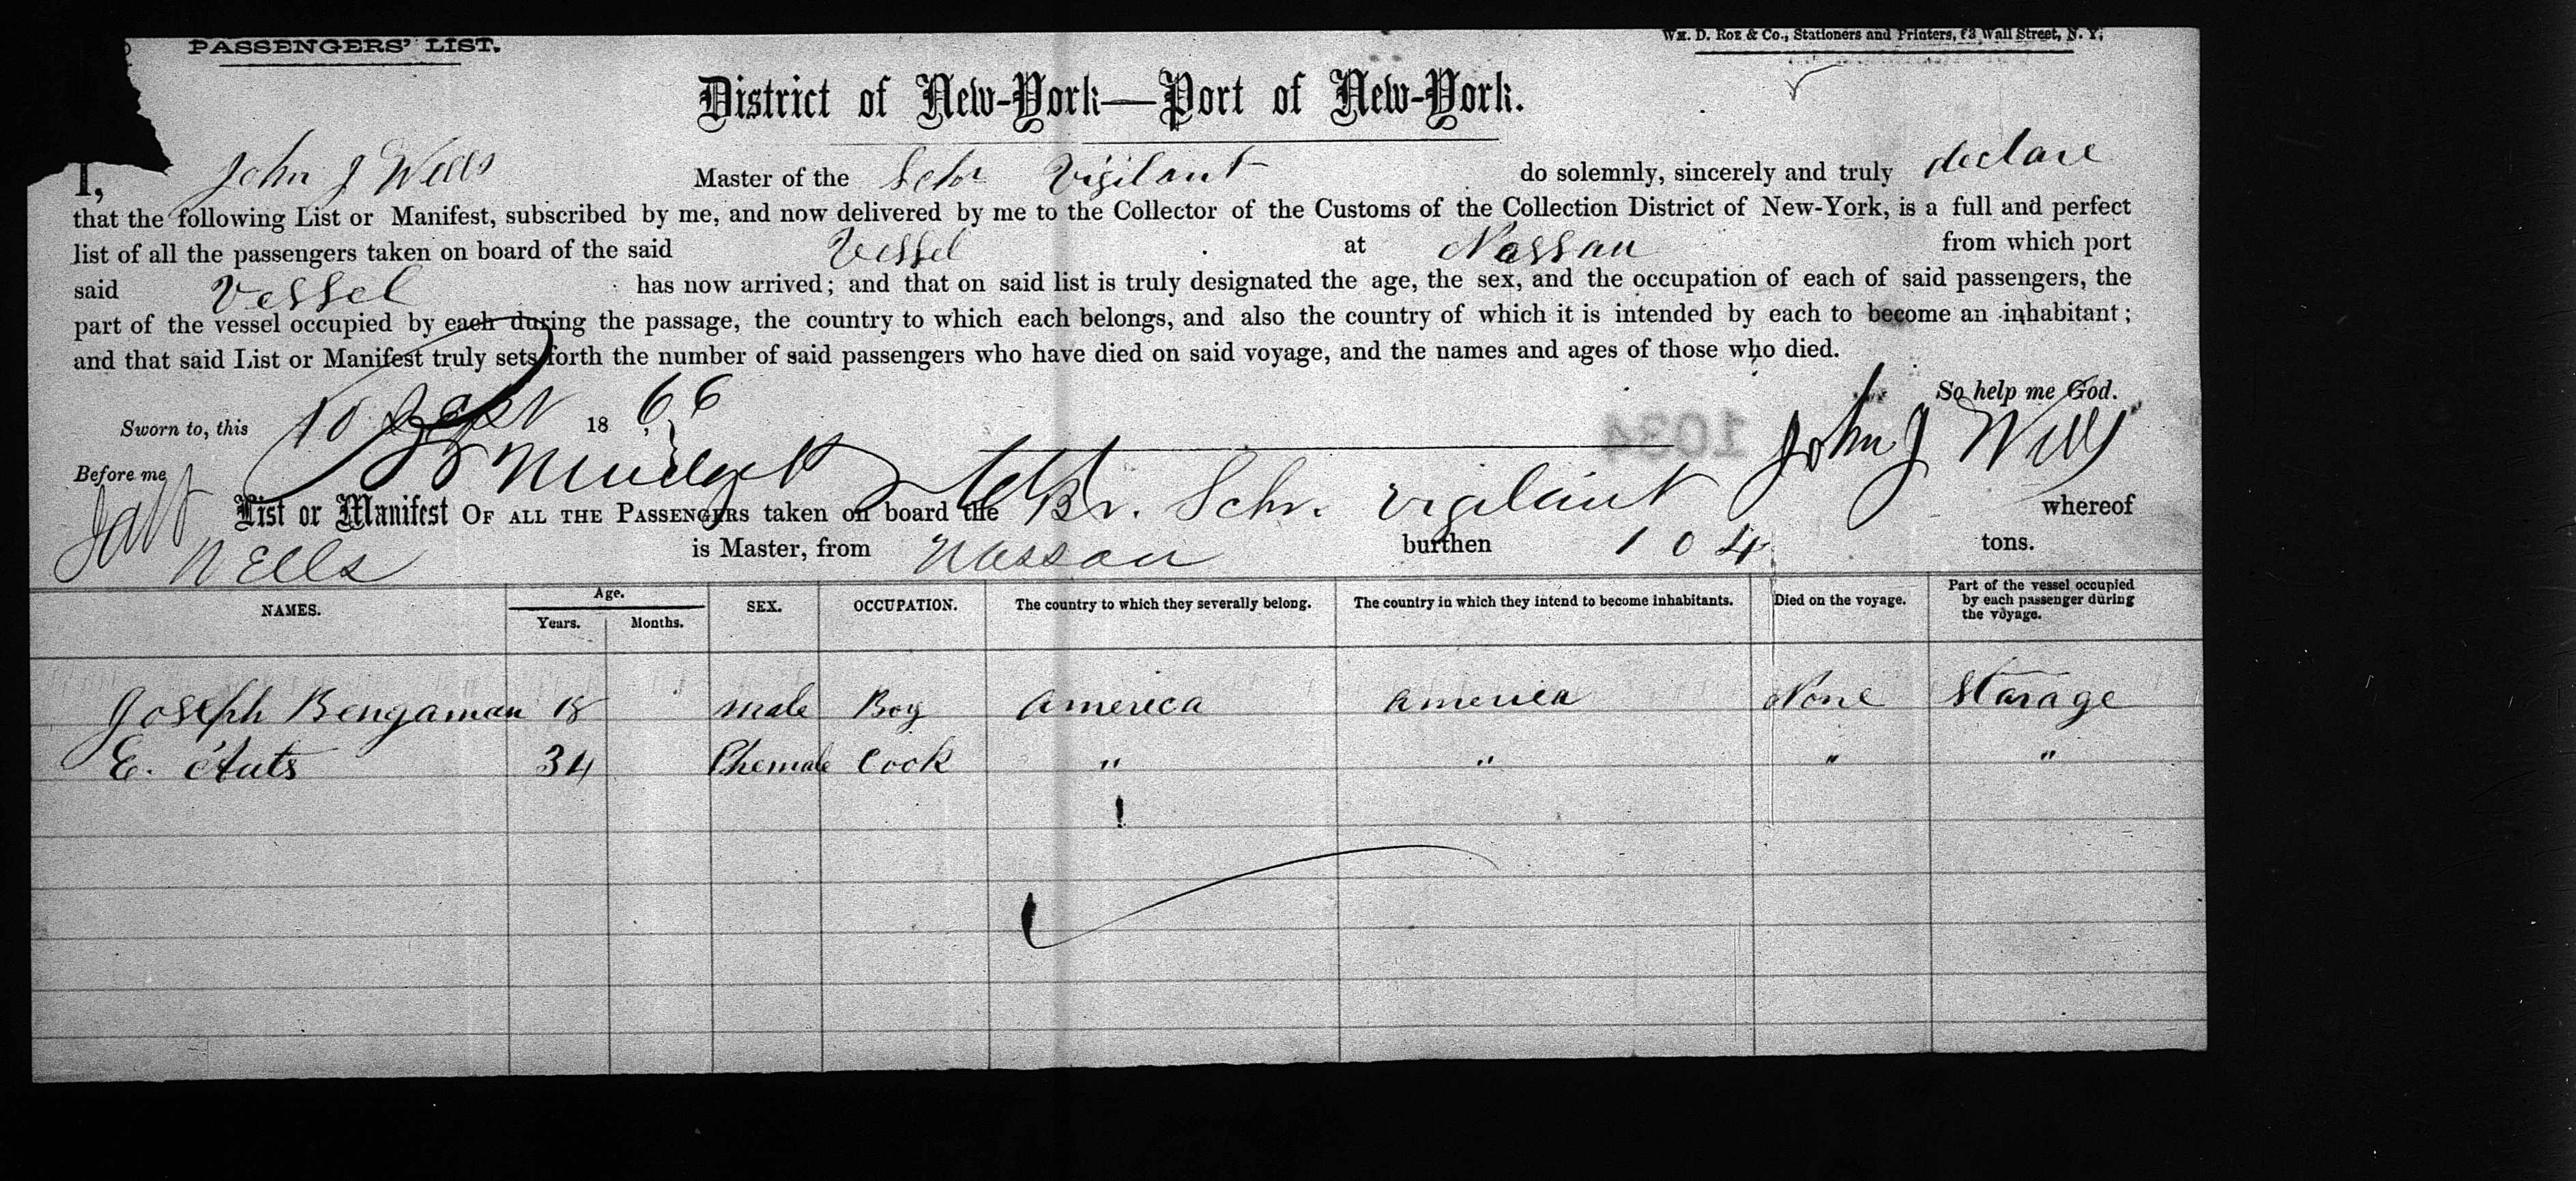 PASSENGERS' LIST.
Wm. D. Roe & Co., Stationers and Printers, 73 Wall Street, N. Y.
District of New-York—Port of New-York.
I, John J Wells Master of the Schr Vigilant do solemnly, sincerely and truly declare
that the following List or Manifest, subscribed by me, and now delivered by me to the Collector of the Customs of the Collection District of New-York, is a full and perfect
list of all the passengers taken on board of the said Vessel at Nassau from which port
said Vessel has now arrived; and that on said list is truly designated the age, the sex, and the occupation of each of said passengers, the
part of the vessel occupied by each during the passage, the country to which each belongs, and also the country of which it is intended by each to become an inhabitant;
and that said List or Manifest truly sets forth the number of said passengers who have died on said voyage, and the names and ages of those who died.
So help me God.
Sworn to, this 10 Sept 1866
John J Wells
1034
Before me
List or Manifest OF ALL THE PASSENGERS taken on board the Br. Schr. Vigilant whereof
Wells is Master, from Nassau burthen 104 tons.
NAMES. Age. Years. Months. SEX. OCCUPATION. The country to which they severally belong. The country in which they intend to become inhabitants. Died on the voyage. Part of the vessel occupied by each passenger during the voyage.
Joseph Bengaman 18 male Boy America America None Starage
E. 34 Phemale Cook " " " "